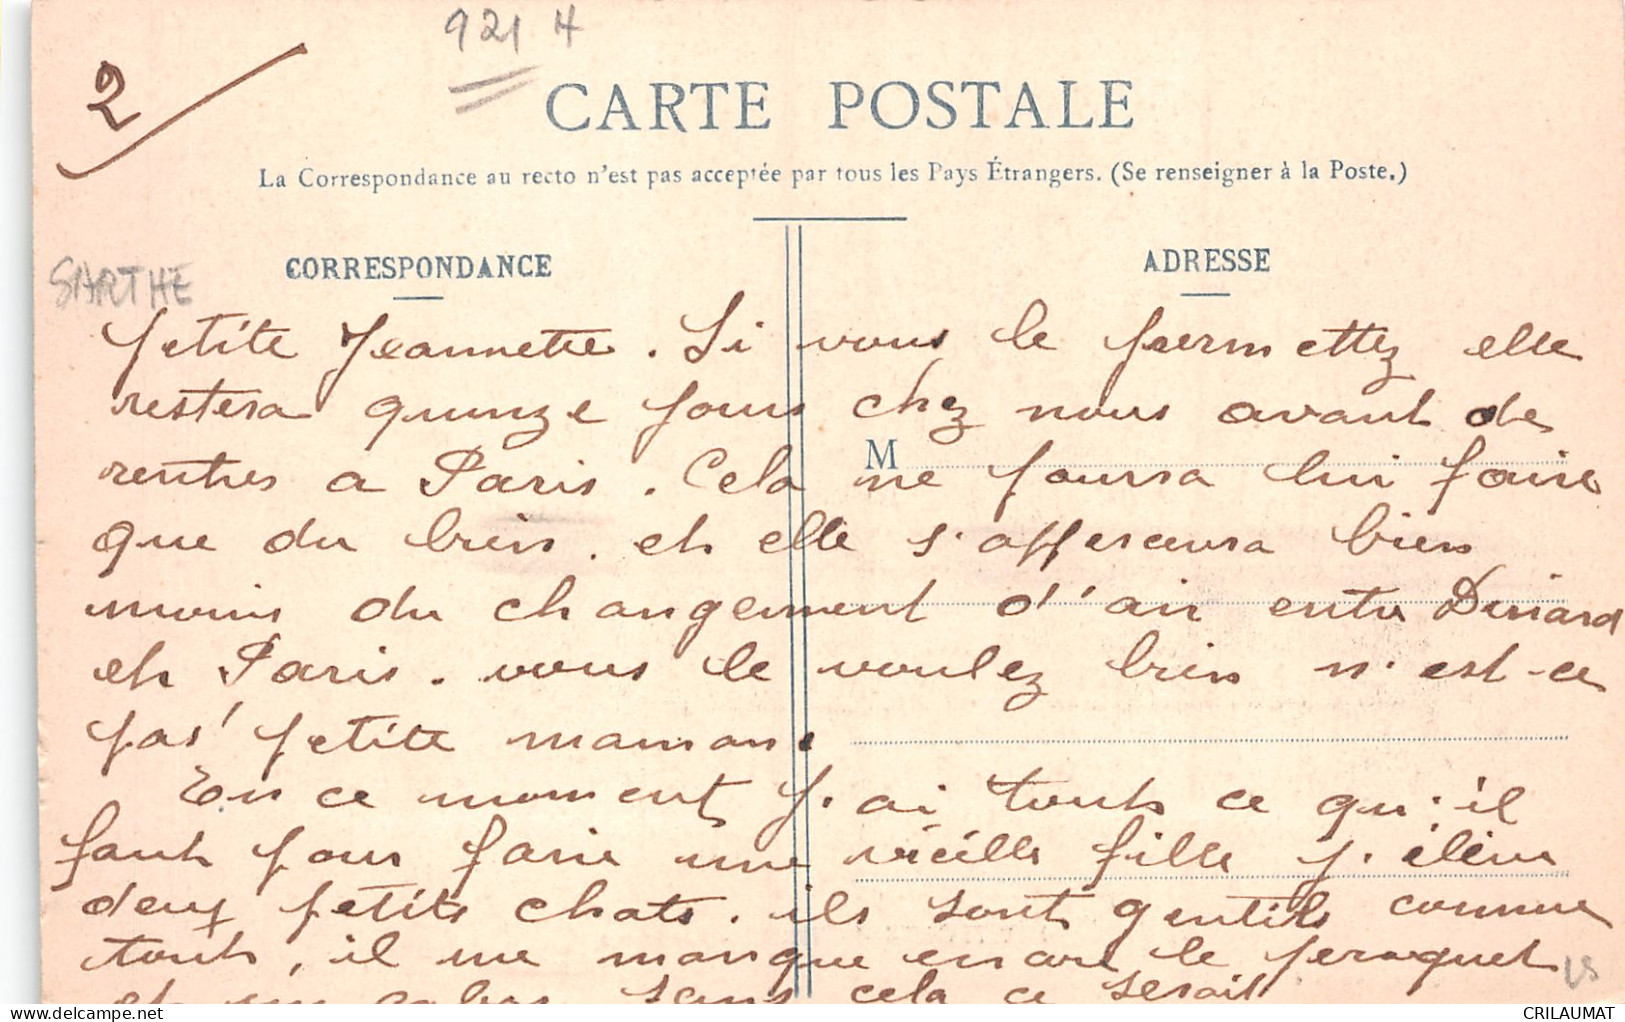 921 H
2
CARTE POSTALE
La Correspondance au recto n'est pas acceptée par tous les Pays Étrangers. (Se renseigner à la Poste.)
CORRESPONDANCE
ADRESSE
SARTHE
M
petite Jeannette. Si vous le permettez elle
restera quinze jours chez nous avant de
rentrer a Paris. Cela ne pourra lui faire
que du bien. et elle s'appercevra bien
moins du changement d'air entre Dinard
et Paris. vous le voulez bien n'est-ce
pas' petite maman.
En ce moment j'ai tout ce qu'il
faut pour faire une vieille fille j'élève
deux petits chats. ils sont gentils comme
tout, il me manque encore le perroquet
et sans cela ce serait
CRILAUMAT